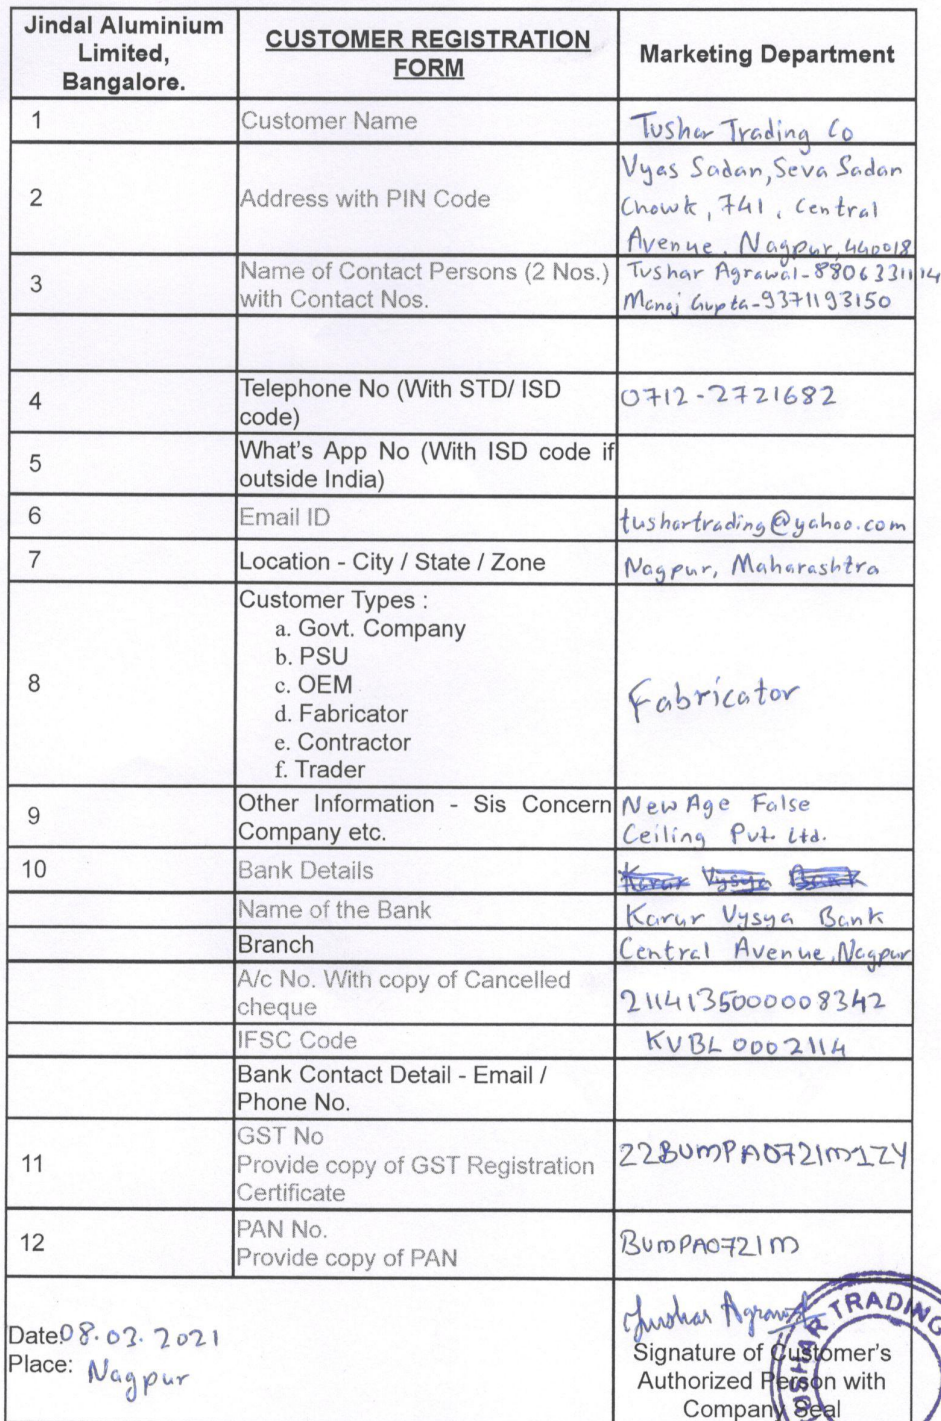 Jindal Aluminium
Limited,
Bangalore.
CUSTOMER REGISTRATION
FORM
Marketing Department
1
Customer Name
Tushar Trading Co
2
Address with PIN Code
Vyas Sadan, Seva Sadan
Chowk, 741, Central
Avenue, Nagpur, 440018
3
Name of Contact Persons (2 Nos.)
with Contact Nos.
Tushar Agrawal-8806331114
Manoj Gupta-9371193150
4
Telephone No (With STD/ ISD
code)
0712-2721682
5
What's App No (With ISD code if
outside India)
6
Email ID
tushartrading@yahoo.com
7
Location - City / State / Zone
Nagpur, Maharashtra
8
Customer Types :
a. Govt. Company
b. PSU
c. OEM
d. Fabricator
e. Contractor
f. Trader
Fabricator
9
Other Information - Sis Concern
Company etc.
New Age False
Ceiling Pvt. Ltd.
10
Bank Details
Karur Vysya Bank
Name of the Bank
Karur Vysya Bank
Branch
Central Avenue, Nagpur
A/c No. With copy of Cancelled
cheque
2114135000008342
IFSC Code
KVBL0002114
Bank Contact Detail - Email /
Phone No.
11
GST No
Provide copy of GST Registration
Certificate
22BUMPA0721M1ZY
12
PAN No.
Provide copy of PAN
BUMPA0721M
Date: 08.03.2021
Place: Nagpur
Tushar Agrawal
Signature of Customer's
Authorized Person with
Company Seal
TRADING